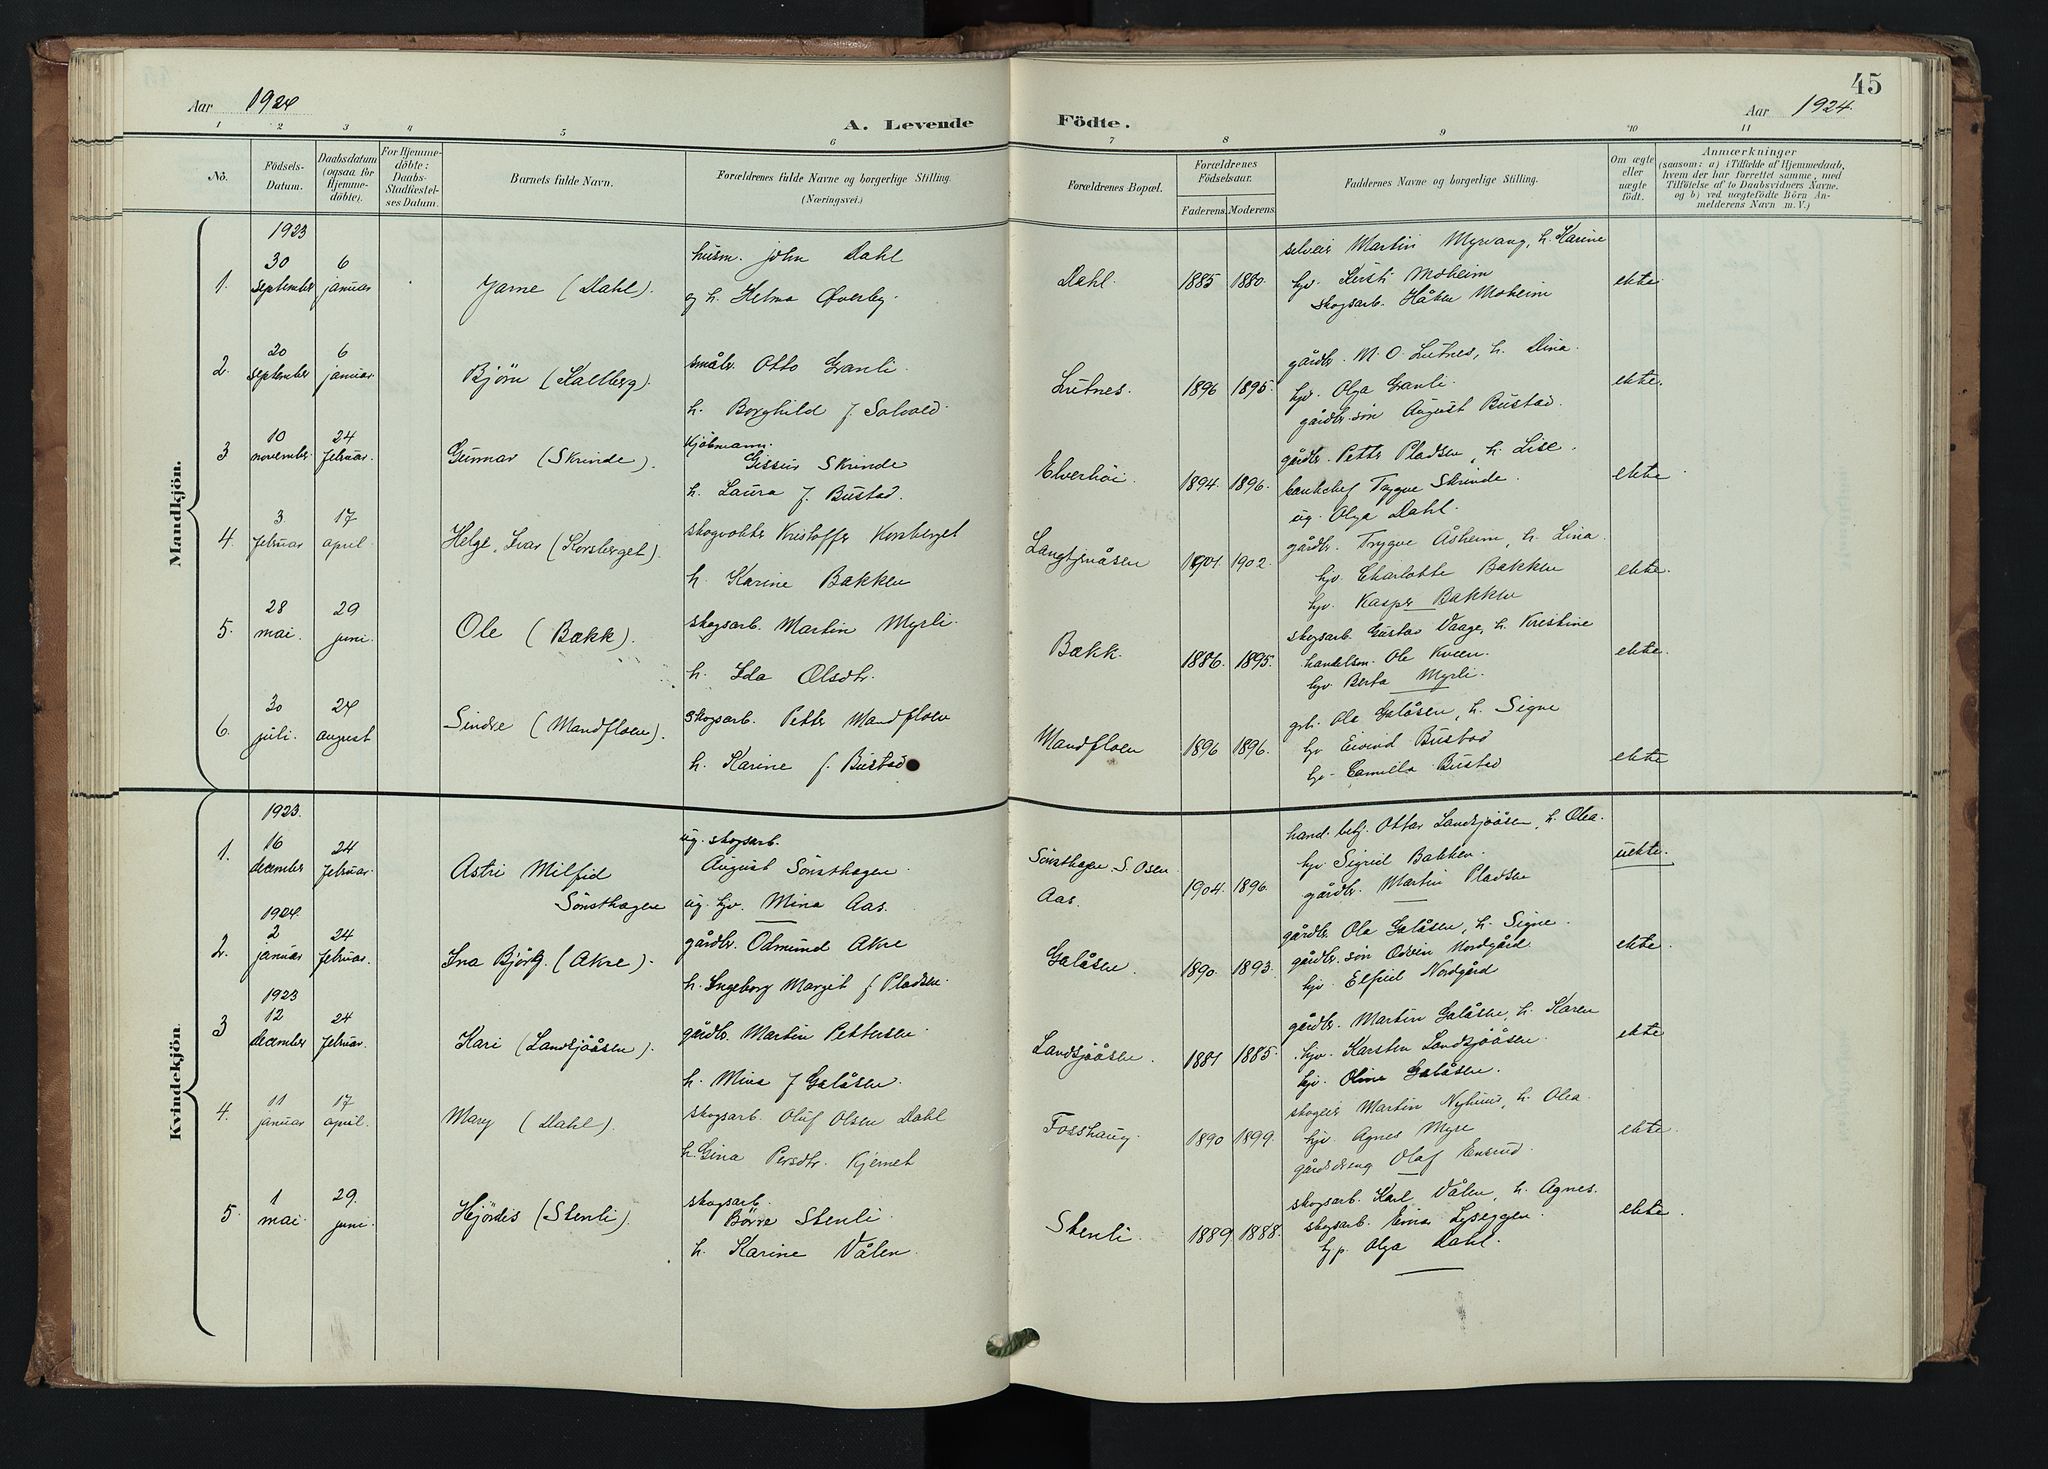 45
Aar 1924
Aar 1924.
A. Levende Födte.
1 2 3 4 5 6 7 8 9 10 11
Nô. Födsels-Datum. Daabsdatum (ogsaa för Hjemme-döbte). For Hjemme-döbte: Daabs-Stadfæstel-ses Datum. Barnets fulde Navn. Forældrenes fulde Navne og borgerlige Stilling. (Næringsvei.) Forældrenes Bopæl. Forældrenes Födselsaar. Faderens. Moderens. Faddernes Navne og borgerlige Stilling. Om ægte eller uægte födt. Anmærkninger
(saasom: a) i Tilfælde af Hjemmedaab, hvem der har forrettet samme, med Tilföielse af to Daabsvidners Navne. og b) ved uægtefödte Börn An-melderens Navn m. V.)
Mandkjön.
1923
1. 30 september 6 januar Jarne (Dahl).
husm. John Dahl
og h. Helma Øverby.
Dahl. 1885 1880.
selveier Martin Myrvang, h. Karine
hjv. Kirsti Moheim
skogsarb. Håken Moheim
ekte
2. 20 september 6 januar Bjørn (Kallberg).
småbr. Otto Granli
h. Borghild f. Solvold.
Lutnes. 1896 1895.
gårdbr. M. O. Lutnes, h. Dina.
hjv. Olga Granli.
gårdbr.søn August Bustad.
ekte.
3 10 november 24 februar. Gunnar (Skrinde).
kjøbmann.
Gissur Skrinde
h. Laura f. Bustad.
Elverhöi 1894. 1896.
gårdbr. Petter Pladsen, h. Lise.
bankchef Trygve Skrinde.
ug. Olga Dahl.
ekte
4. 3 februar 17 april. Helge, Ivar (Korsberget).
skogvokter Kristoffer Korsberget
h. Karine Bakken
Langtjernåsen 1901. 1902.
gårdbr. Trygve Åsheim, h. Lina.
hjv. Charlotte Bakken
hjv. Kasper Bakken
ekte.
5. 28 mai. 29 juni. Ole (Bækk).
skogsarb. Martin Myrli.
h. Ida Olsdtr.
Bækk. 1886. 1895.
skogsarb. Gustav Vaage, h. Kristine
handelsm. Ole Kveen.
hjv. Berta Myrli.
ekte.
6. 30 juli. 24 august Sindre (Mandfloen).
skogsarb. Petter Mandfloen
h. Karine f. Bustad
Mandfloen 1896 1896.
grb. Ole Galåsen, h. Signe
hjv Eivind Bustad
hjv. Camilla Bustad
ekte
Kvindekjön.
1923.
1. 16 december 24 februar. Astri Milfid
Sønsthagen
ug. skogsarb.
August Sønsthagen.
ug. hjv. Mina Aas.
Sønsthagen. S. Osen.
Aas. 1904. 1896.
hand. betj. Ottar Landsjøåsen, h. Olea.
hjv. Sigrid Bakken.
gårdbr. Martin Pladsen
uekte.
1924.
2. 2 januar 24 februar. Ina Björg. (Akre).
gårdbr. Odmund Akre
h. Ingeborg Margit f Pladsen.
Galåsen. 1890. 1893.
gårdbr Ole Galåsen, h. Signe.
gårdbr. søn Odvin Nordgård.
hjv. Elfrid Nordgård
ekte.
1923
3 12 december 24 februar. Kari (Landsjøåsen).
gårdbr. Martin Pettersen.
h. Mina f Galåsen.
Landsjøåsen. 1881 1885.
gårdbr. Martin Galåsen, h. Karen
hjv. Karsten Landsjøåsen.
hjv. Oline Galåsen.
ekte
4. 11 januar 17 april. Mary (Dahl).
skogsarb. Oluf Olsen Dahl
h. Gina Persdtr. Kjernet
Fosshaug. 1890 1899.
skogeier Martin Nyhuus, h. Olea.
hjv. Agnes Myre
gårdsdreng Olaf Enerud.
ekte.
5. 1 mai. 29. juni. Hjördis (Stenli).
skogsarb.
Börre Stenli.
h. Karine Vålen.
Stenli. 1889 1888.
skogsarb. Karl Vålen, h. Agnes.
skogsarb. Einar Lyseggen.
hjp. Olga Dahl.
ekte.